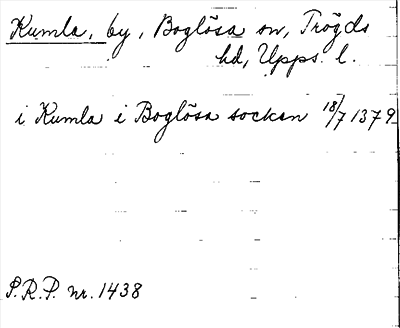 Kumla, by, Boglösa sn, Trögds
hd, Upps. l.
i Kumla i Boglösa sockan 18/7 1379
S.R.P. nr. 1438